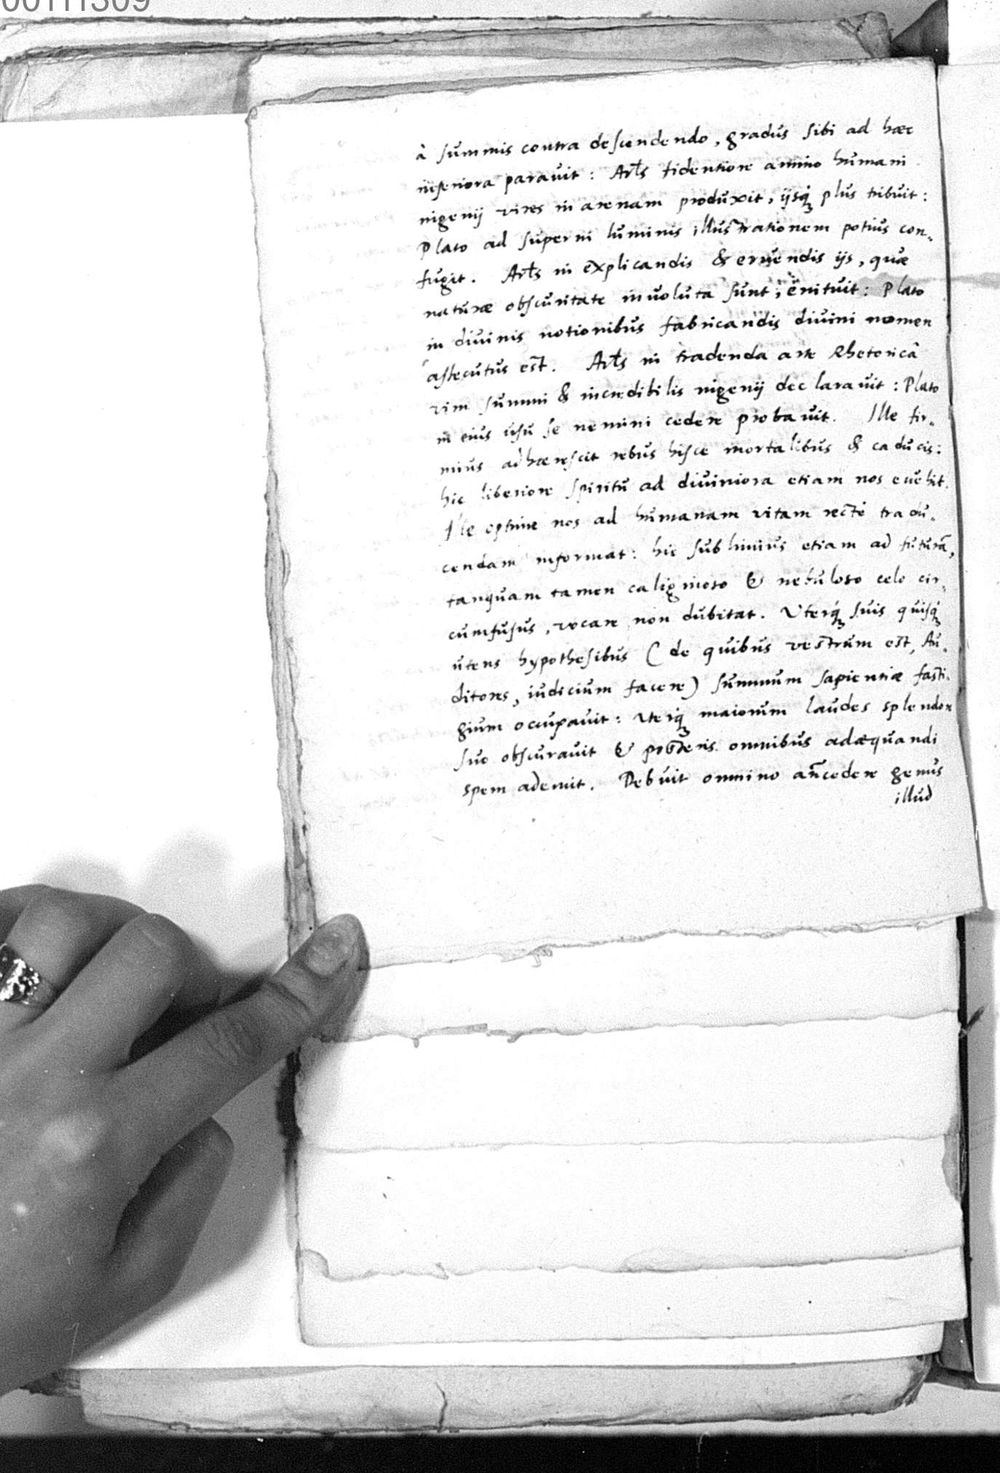 00111309
à summis contra descendendo, gradus sibi ad hæc
inferiora paravit: Arls fidentiore animo humani
ingenij vires in arenam produxit, ijsq; plus tribuit:
Plato ad superni luminis illustrationem potius con-
fugit. Arls in explicandis & eruendis ijs, quæ
naturæ obscuritate involuta sunt, enituit: Plato
in divinis notionibus fabricandis divini nomen
assecutus est. Arls in tradenda arte Rhetoricâ
vim summi & incredibilis ingenij declaravit: Plato
in eius usu se nemini cedere probavit. Ille fir-
mius adhærescit rebus hisce mortalibus & caducis:
hic liberiore spiritu ad diviniora etiam nos evehit.
Ille optime nos ad humanam vitam rectè tradu-
cendam informat: hic sublimius etiam ad futurã,
tanquam tamen caliginoso & nebuloso celo cir-
cumfusus, vocare non dubitat. Vterq; suis quisq;
utens hypothesibus (de quibus vestrum est, Au-
ditores, iudicium facere) summum sapientiæ fasti-
gium occupavit: uterq; maiorum laudes splendore
suo obscuravit & posteris omnibus adæquandi
spem ademit. Debuit omnino añcedere genus
illud